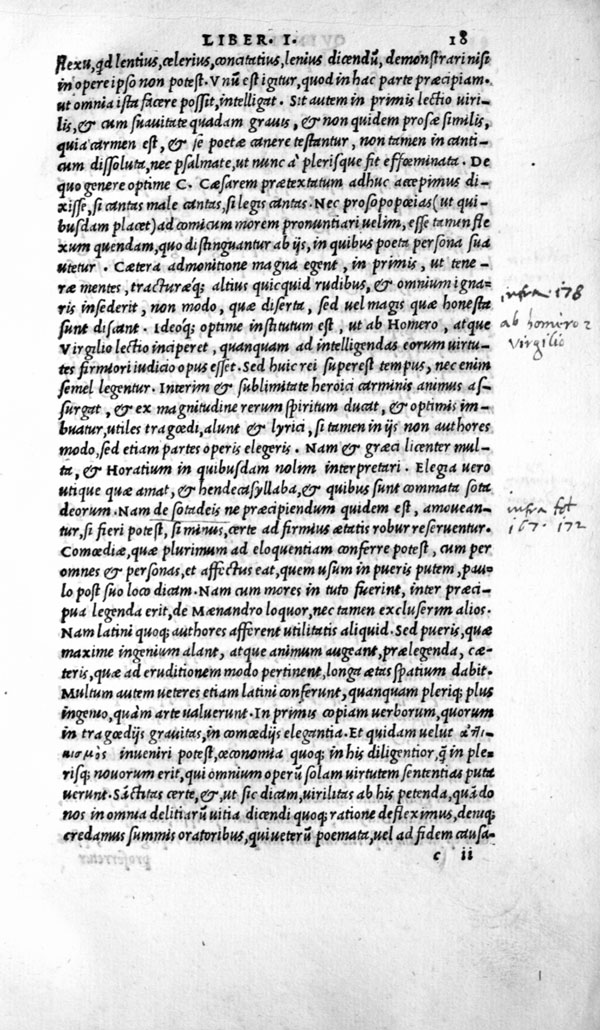 LIBER. I. 18
flexu, qd lentius, cœlerius, concitatius, lenius dicendũ, demonstrari nisi
in opere ipso non potest. Vnũ est igitur, quod in hac parte præcipiam.
ut omnia ista facere possit, intelligat. Sit autem in primis lectio uiri-
lis, & cum suauitate quadam grauis, & non quidem prosæ similis,
quia carmen est, & se poetæ canere testantur, non tamen in canti-
cum dissoluta, nec psalmate, ut nunc à plerisque fit effœminata. De
quo genere optime C. Cæsarem prætextatum adhuc accepimus di-
xisse, si cantas male cantas, si legis cantas. Nec prosopopœias (ut qui-
busdam placet) ad comicum morem pronuntiari uelim, esse tamen fle-
xum quendam, quo distinguantur ab ijs, in quibus poeta persona sua
utetur. Cætera admonitione magna egent, in primis, ut tene-
ræ mentes, tracturæq; altius quicquid rudibus, & omnium igna-
ris insederit, non modo, quæ diserta, sed uel magis quæ honesta
sunt discant. Ideoq; optime institutum est, ut ab Homero, atque
Virgilio lectio inciperet, quanquam ad intelligendas eorum uirtu-
tes firmiori iudicio opus esset. Sed huic rei superest tempus, nec enim
semel legentur. Interim & sublimitate heroici carminis animus as-
surgat, & ex magnitudine rerum spiritum ducat, & optimis im-
buatur, utiles tragœdi, alunt & lyrici, si tamen in ijs non authores
modo, sed etiam partes operis elegeris. Nam & græci licenter mul-
ta, & Horatium in quibusdam nolim interpretari. Elegia uero
utique quæ amat, & hendecasyllaba, & quibus sunt commata sota
deorum. Nam de sotadeis ne præcipiendum quidem est, amouean-
tur, si fieri potest, si minus, certe ad firmius ætatis robur reseruentur.
Comœdiæ, quæ plurimum ad eloquentiam conferre potest, cum per
omnes & personas, et affectus eat, quem usum in pueris putem, pau-
lo post suo loco dicam. Nam cum mores in tuto fuerint, inter præci-
pua legenda erit, de Mænandro loquor, nec tamen excluserim alios.
Nam latini quoq; authores afferent utilitatis aliquid. Sed pueris, quæ
maxime ingenium alant, atque animum augeant, prælegenda, cæ-
teris, quæ ad eruditionem modo pertinent, longa ætas spatium dabit.
Multum autem ueteres etiam latini conferunt, quanquam pleriq; plus
ingenio, quàm arte ualuerunt. In primis copiam uerborum, quorum
in tragœdijs grauitas, in comœdijs elegantia. Et quidam uelut ἀττι-
κισμὸς inueniri potest, œconomia quoq; in his diligentior, q̃ in ple-
risq; nouorum erit, qui omnium operũ solam uirtutem sententias puta
uerunt. Sãctitas certe, &, ut sic dicam, uirilitas ab his petenda, quãdo
nos in omnia delitiarũ uitia dicendi quoq; ratione defleximus, deniq;
credamus summis oratoribus, qui ueterũ poemata, uel ad fidem causa-
c ii
infra 178
ab homero 2
Virgilio
infra fol
167. 172